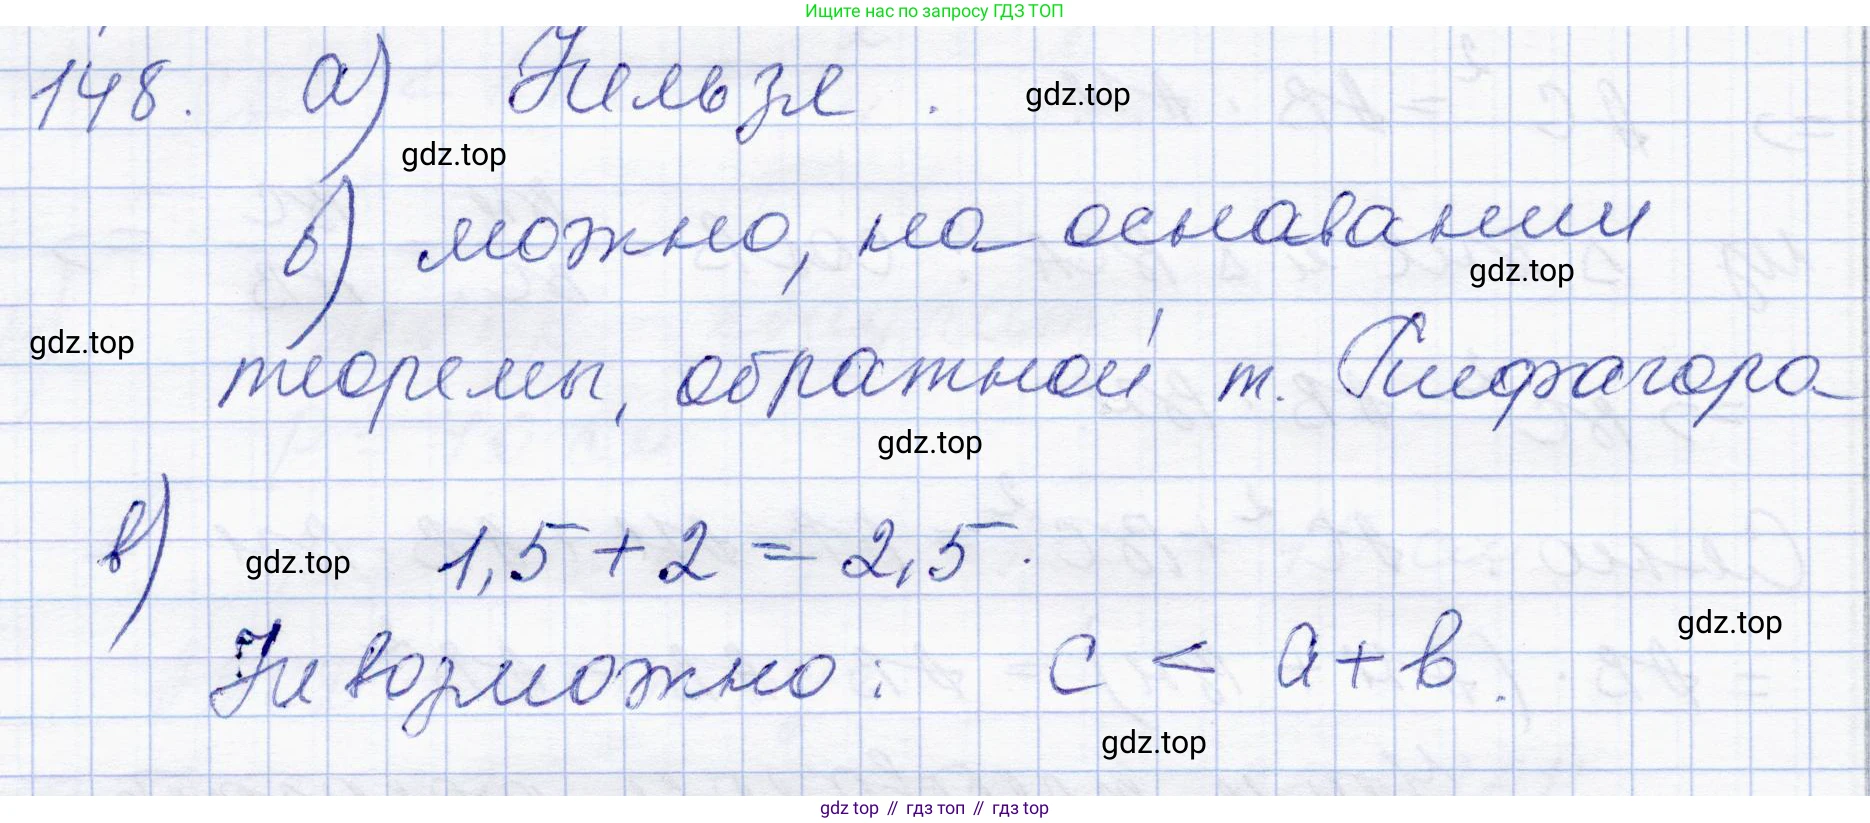 Ищите нас по запросу ГДЗ ТОП
148. а) Нельзя. gdz.top
gdz.top
б) можно, на основании
gdz.top
gdz.top
теоремы, обратной т. Пифагора
gdz.top
в) gdz.top 1,5 + 2 = 2,5.
gdz.top
Невозможно: c < a + b.
gdz.top
gdz top // гдз топ // гдз top